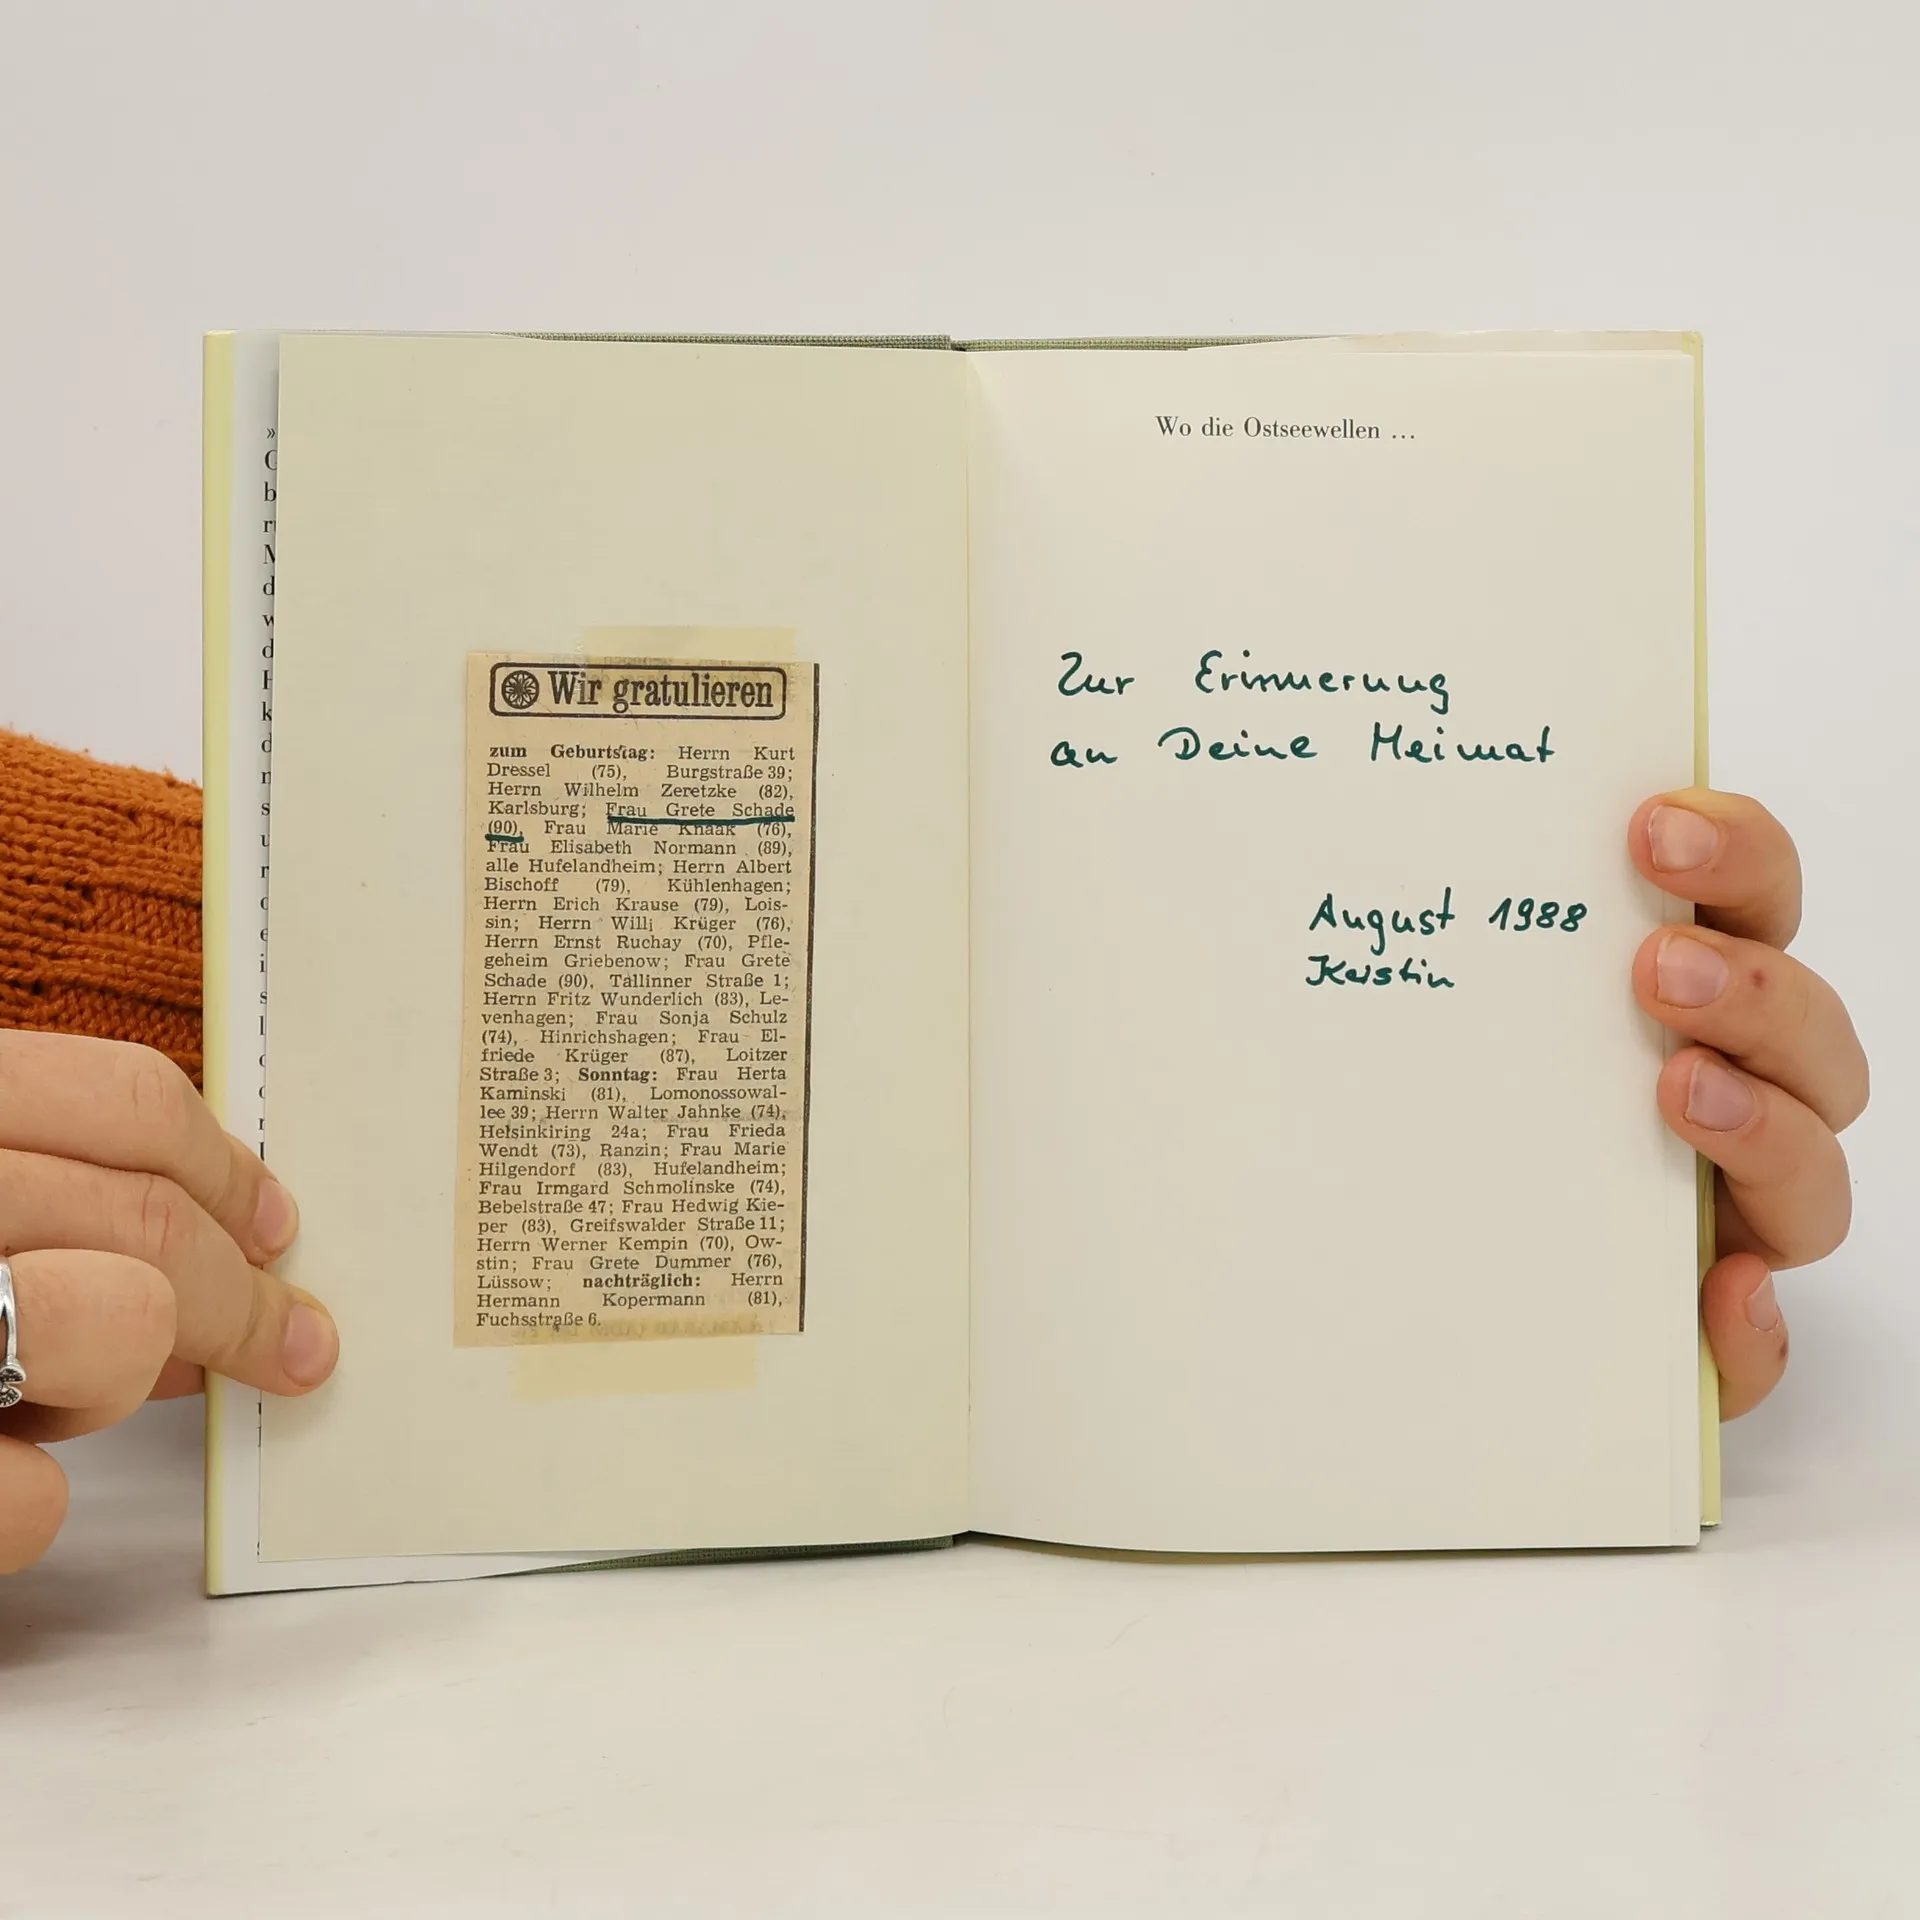 Wir gratulieren
zum Geburtstag: Herrn Kurt
Dressel (75), Burgstraße 39;
Herrn Wilhelm Zeretzke (82),
Karlsburg; Frau Grete Schade
(90), Frau Marie Knaak (76),
Frau Elisabeth Normann (89),
alle Hufelandheim; Herrn Albert
Bischoff (79), Kühlenhagen;
Herrn Erich Krause (79), Lois-
sin; Herrn Willi Krüger (76),
Herrn Ernst Ruchay (70), Pfle-
geheim Griebenow; Frau Grete
Schade (90), Tallinner Straße 1;
Herrn Fritz Wunderlich (83), Le-
venhagen; Frau Sonja Schulz
(74), Hinrichshagen; Frau El-
friede Krüger (87), Loitzer
Straße 3; Sonntag: Frau Herta
Kaminski (81), Lomonossowal-
lee 39; Herrn Walter Jahnke (74),
Helsinkiring 24a; Frau Frieda
Wendt (73), Ranzin; Frau Marie
Hilgendorf (83), Hufelandheim;
Frau Irmgard Schmolinske (74),
Bebelstraße 47; Frau Hedwig Kie-
per (83), Greifswalder Straße 11;
Herrn Werner Kempin (70), Ow-
stin; Frau Grete Dummer (76),
Lüssow; nachträglich: Herrn
Hermann Kopermann (81),
Fuchsstraße 6.
Wo die Ostseewellen ...
Zur Erinnerung
an Deine Heimat
August 1988
Kerstin